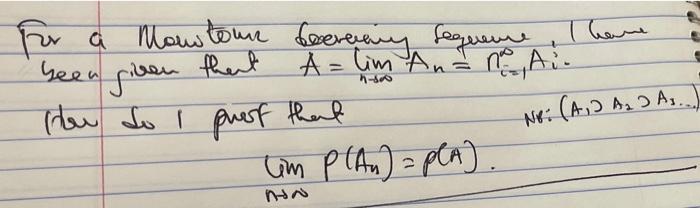 For a Monotone decreasing sequence, I have
been given that A = lim n→∞ An = ∩∞i=1 Ai.
How do I proof that NB: (A1 ⊃ A2 ⊃ A3...)
lim n→∞ P(An) = P(A).